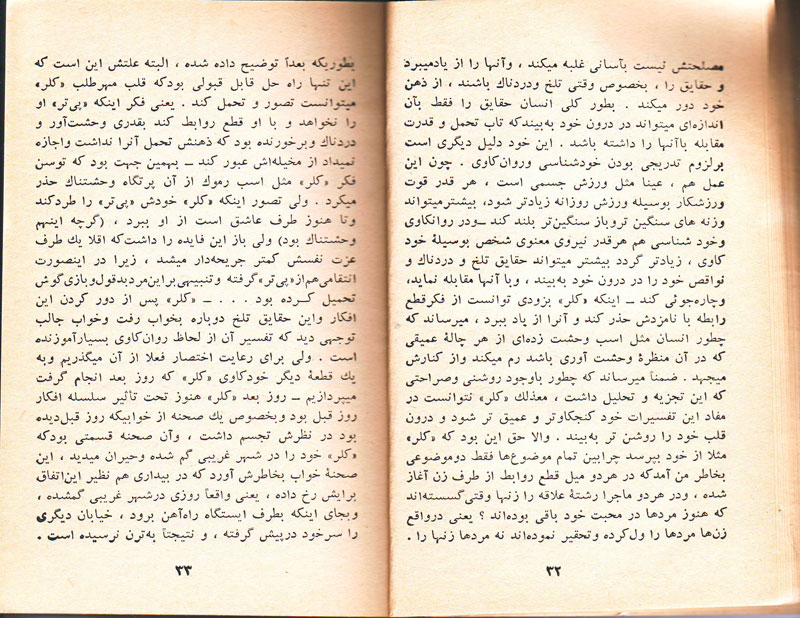 مصلحتش نیست بآسانی غلبه میکند ، وآنها را از یادمیبرد
و حقایق را ، بخصوص وقتی تلخ ودردناك باشند ، از ذهن
خود دور میکند . بطور کلی انسان حقایق را فقط بآن
اندازه‌ای میتواند در درون خود به‌بیندکه تاب تحمل و قدرت
مقابله باآنها را داشته باشد . این خود دلیل دیگری است
برلزوم تدریجی بودن خودشناسی وروان‌کاوی . چون این
عمل هم ، عیناً مثل ورزش جسمی است ، هر قدر قوت
ورزشکار بوسیله ورزش روزانه زیادتر شود، بیشترمیتواند
وزنه های سنگین تروباز سنگین‌تر بلند کند ــ ودر روانکاوی
وخود شناسی هم هرقدر نیروی معنوی شخص بوسیلهٔ خود
کاوی ، زیادتر گردد بیشتر میتواند حقایق تلخ و دردناك و
نواقص خود را در درون خود به‌بیند ، وبا آنها مقابله نماید،
وچاره‌جوئی کند ــ اینکه «کلر» بزودی توانست از فکرقطع
رابطه با نامزدش حذر کند و آنرا از یاد ببرد ، میرساند که
چطور انسان مثل اسب وحشت زده‌ای از هر چالهٔ عمیقی
که در آن منظرهٔ وحشت آوری باشد رم میکند واز کنارش
میجهد . ضمناً میرساند که چطور باوجود روشنی وصراحتی
که این تجزیه و تحلیل داشت ، معذلك «کلر» نتوانست در
مفاد این تفسیرات خود کنجکاوتر و عمیق تر شود و درون
قلب خود را روشن تر به‌بیند . والا حق این بود که «کلر»
مثلا از خود بپرسد چرابین تمام موضوع‌ها فقط دوموضوعی
بخاطر من آمدکه در هردو میل قطع روابط از طرف زن آغاز
شده ، ودر هردو ماجرا رشتهٔ علاقه را زنها وقتی‌گسسته‌اند
که هنوز مردها در محبت خود باقی بوده‌اند ؟ یعنی درواقع
زن‌ها مردها را ول‌کرده وتحقیر نموده‌اند نه مردها زنها را .
۳۲
بطوریکه بعداً توضیح داده شده ، البته علتش این است که
این تنها راه حل قابل قبولی بودکه قلب مهرطلب «کلر»
میتوانست تصور و تحمل کند . یعنی فکر اینکه «پی‌تر» او
را نخواهد و با او قطع روابط کند بقدری وحشت‌آور و
دردناك وبرخورنده بود که ذهنش تحمل آنرا نداشت واجازه
نمیداد از مخیله‌اش عبور کند ــ بهمین جهت بود که توسن
فکر «کلر» مثل اسب رموك از آن پرتگاه وحشتناك حذر
میکرد . ولی تصور اینکه «کلر» خودش «پی‌تر» را طردکند
وتا هنوز طرف عاشق است از او ببرد ، (گرچه اینهم
وحشتناك بود) ولی باز این فایده را داشت‌که اقلا یك طرف
عزت نفسش کمتر جریحه‌دار میشد ، زیرا در اینصورت
انتقامی‌هم‌از«پی‌تر»گرفته وتنبیهی‌براین‌مردبدقول‌وبازی‌گوش
تحمیل کـرده بود . . . ــ «کلر» پس از دور کردن این
افکار واین حقایق تلخ دوباره بخواب رفت وخواب جالب
توجهی دید که تفسیر آن از لحاظ روان‌کاوی بسیارآموزنده
است . ولی برای رعایت اختصار فعلا از آن میگذریم وبه
یك قطعهٔ دیگر خودکاوی «کلر» که روز بعد انجام گرفت
میپردازیم ــ روز بعد «کلر» هنوز تحت تأثیر سلسله افکار
روز قبل بود وبخصوص یك صحنه از خوابیکه روز قبل‌دیده
بود در نظرش تجسم داشت ، وآن صحنه قسمتی بودکه
«کلر» خود را در شهر غریبی گم شده وحیران میدید ، این
صحنهٔ خواب بخاطرش آورد که در بیداری هم نظیر این‌اتفاق
برایش رخ داده ، یعنی واقعاً روزی درشهر غریبی گمشده ،
وبجای اینکه بطرف ایستگاه راه‌آهن برود ، خیابان دیگری
را سرخود درپیش گرفته ، و نتیجتاً به‌ترن نرسیده است .
۳۳